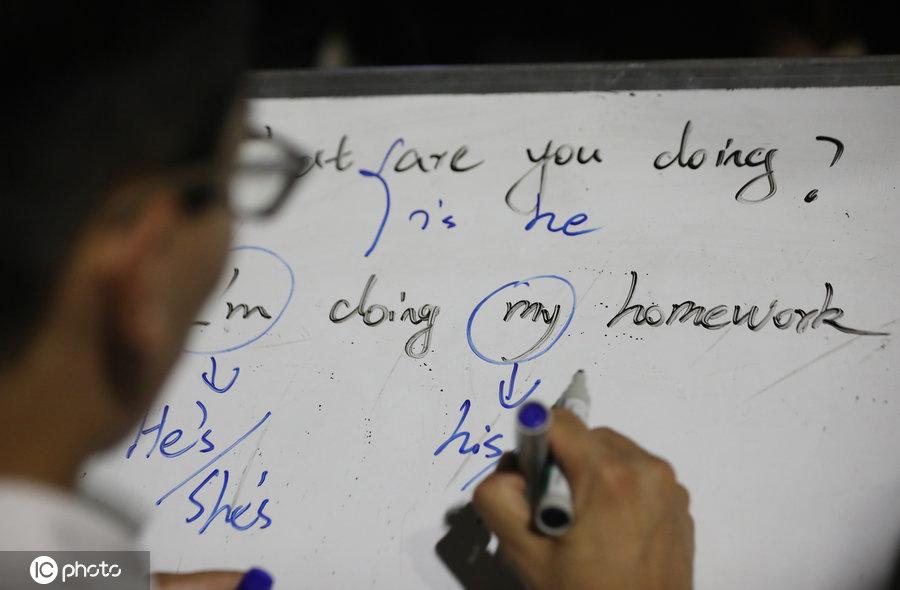 are you doing ?
is he
I'm doing my homework
He's / his
She's
IC photo